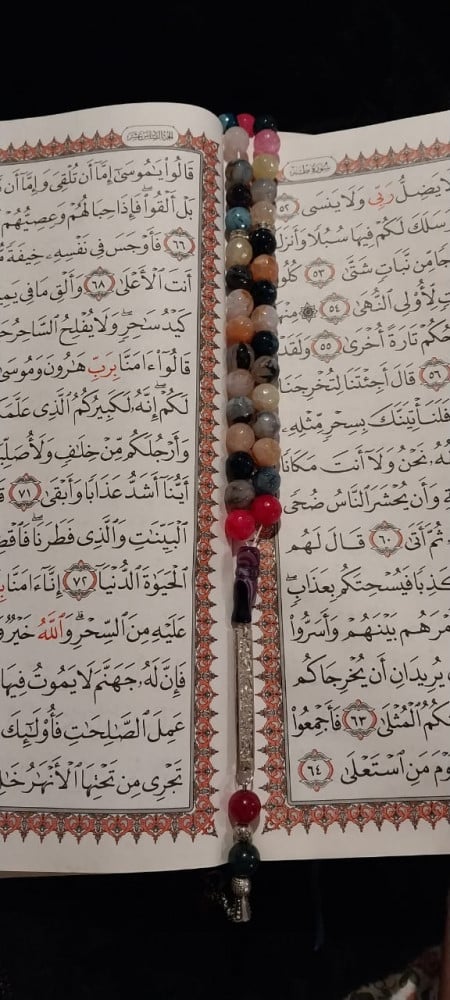 سُورَةُ طه
لَّا يَضِلُّ رَبِّى وَلَا يَنسَى ٥٢
وَسَلَكَ لَكُمْ فِيهَا سُبُلًا وَأَنزَلَ
مِّن نَّبَاتٍ شَتَّىٰ ٥٣ كُلُوا۟
لِّأُو۟لِى ٱلنُّهَىٰ ٥٤ مِنْهَا
نُخْرِجُكُمْ تَارَةً أُخْرَىٰ ٥٥ وَلَقَدْ
٥٦ قَالَ أَجِئْتَنَا لِتُخْرِجَنَا
فَلَنَأْتِيَنَّكَ بِسِحْرٍ مِّثْلِهِۦ
نَحْنُ وَلَآ أَنتَ مَكَانًا
وَأَن يُحْشَرَ ٱلنَّاسُ ضُحًى
ثُمَّ أَتَىٰ ٦٠ قَالَ لَهُم
كَذِبًا فَيُسْحِتَكُم بِعَذَابٍ
بَيْنَهُمْ وَأَسَرُّوا۟
يُرِيدَانِ أَن يُخْرِجَاكُم
ٱلْمُثْلَىٰ ٦٣ فَأَجْمِعُوا۟
مَنِ ٱسْتَعْلَىٰ ٦٤
قَالُوا۟ يَٰمُوسَىٰٓ إِمَّآ أَن تُلْقِىَ وَإِمَّآ أَن
بَلْ أَلْقُوا۟ فَإِذَا حِبَالُهُمْ وَعِصِيُّهُمْ
٦٦ فَأَوْجَسَ فِى نَفْسِهِۦ خِيفَةً
أَنتَ ٱلْأَعْلَىٰ ٦٨ وَأَلْقِ مَا فِى
كَيْدُ سَٰحِرٍ وَلَا يُفْلِحُ ٱلسَّاحِرُ
قَالُوٓا۟ ءَامَنَّا بِرَبِّ هَٰرُونَ وَمُوسَىٰ
لَكُمْ إِنَّهُۥ لَكَبِيرُكُمُ ٱلَّذِى
وَأَرْجُلَكُم مِّنْ خِلَٰفٍ
أَيُّنَآ أَشَدُّ عَذَابًا وَأَبْقَىٰ ٧١
ٱلْبَيِّنَٰتِ وَٱلَّذِى فَطَرَنَا فَٱقْضِ
ٱلْحَيَوٰةَ ٱلدُّنْيَآ ٧٢ إِنَّآ ءَامَنَّا
عَلَيْهِ مِنَ ٱلسِّحْرِ وَٱللَّهُ خَيْرٌ
فَإِنَّ لَهُۥ جَهَنَّمَ لَا يَمُوتُ فِيهَا
عَمِلَ ٱلصَّٰلِحَٰتِ فَأُو۟لَٰٓئِكَ
تَجْرِى مِن تَحْتِهَا ٱلْأَنْهَٰرُ